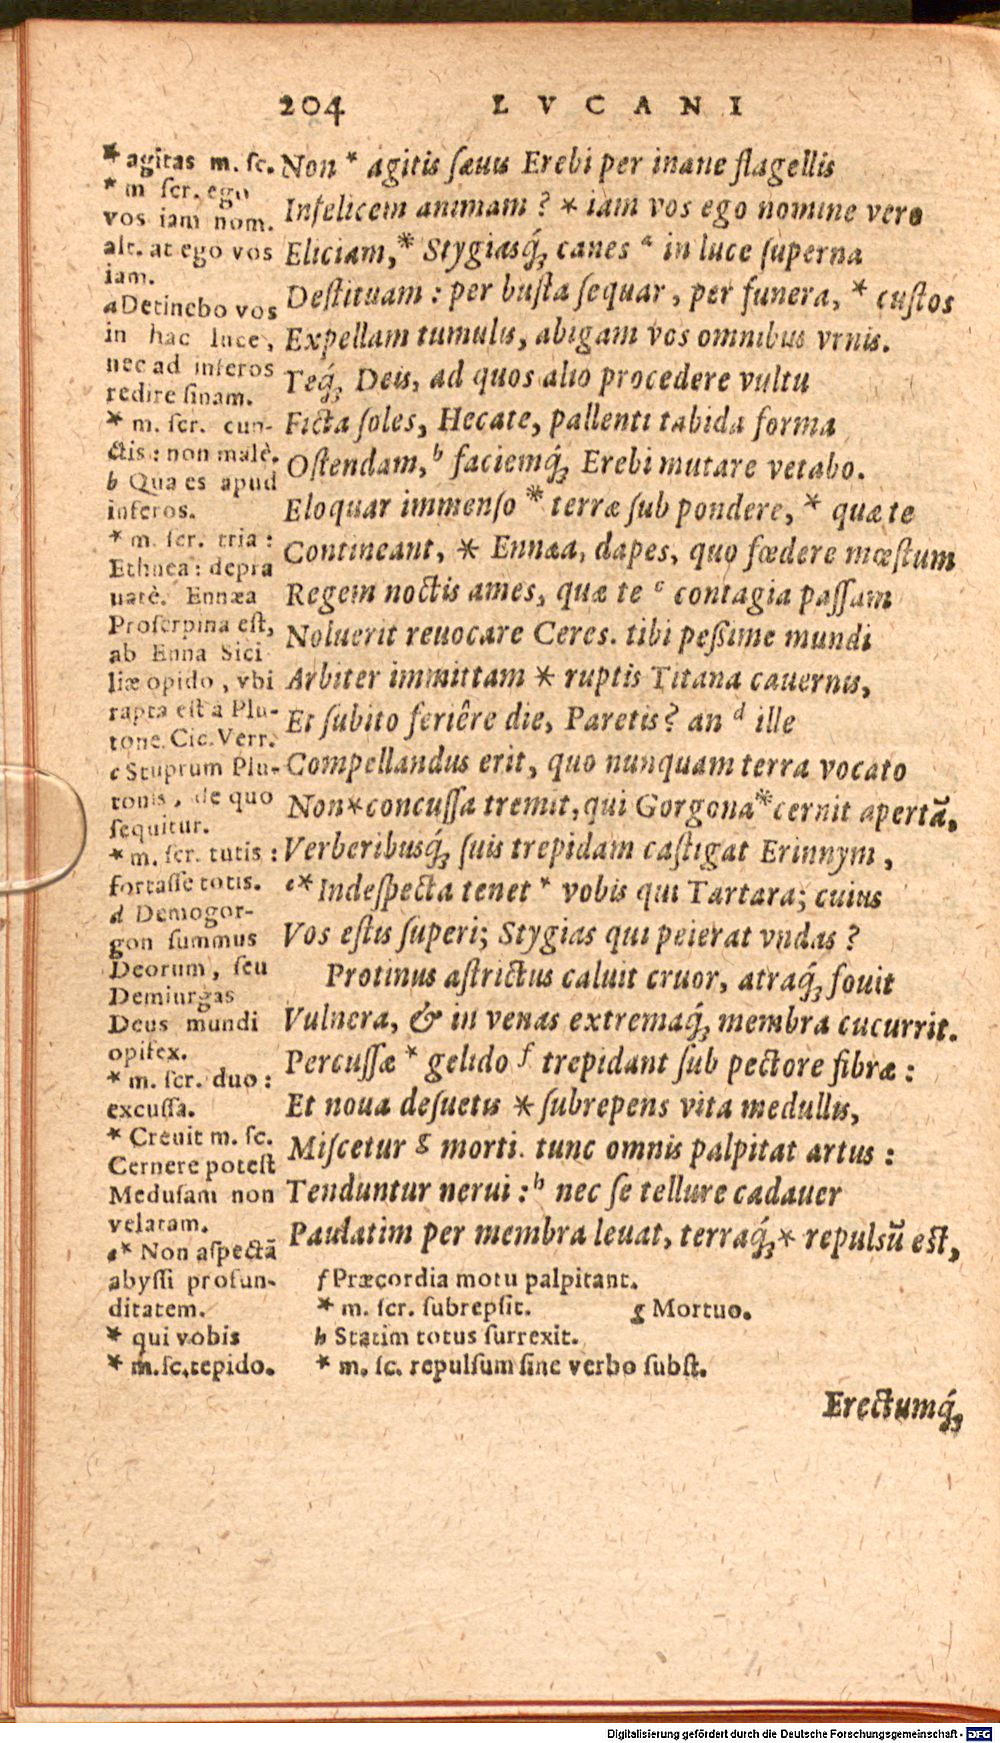 204 LVCANI
Non * agitis sæuis Erebi per inane flagellis
Infelicem animam? * iam vos ego nomine vero
Eliciam,* Stygiasq́ꝫ canes ᵃ in luce superna
Destituam: per busta sequar, per funera, * custos
Expellam tumulis, abigam vos omnibus vrnis.
Teq́ꝫ Deis, ad quos alio procedere vultu
Ficta soles, Hecate, pallenti tabida forma
Ostendam,ᵇ faciemq́ꝫ Erebi mutare vetabo.
Eloquar immenso * terræ sub pondere, * quæ te
Contineant, * Ennæa, dapes, quo fœdere mœstum
Regem noctis ames, quæ te ᶜ contagia passam
Noluerit reuocare Ceres. tibi pessime mundi
Arbiter immittam * ruptis Titana cauernis,
Et subito feriêre die, Paretis? an ᵈ ille
Compellandus erit, quo nunquam terra vocato
Non*concussa tremit, qui Gorgona*cernit apertã,
Verberibusq́ꝫ suis trepidam castigat Erinnym,
ᵉ*Indespecta tenet * vobis qui Tartara; cuius
Vos estis superi; Stygias qui peierat vndas?
Protinus astrictus caluit cruor, atraq́ꝫ fouit
Vulnera, & in venas extremaq́ꝫ membra cucurrit.
Percussæ * gelido ᶠ trepidant sub pectore fibræ:
Et noua desuetis * subrepens vita medullis,
Miscetur ᵍ morti. tunc omnis palpitat artus:
Tenduntur nerui:ʰ nec se tellure cadauer
Paulatim per membra leuat, terraq́ꝫ* repulsũ est,
* agitas m. sc.
* m scr. ego
vos iam nom.
alt. at ego vos
iam.
a Detinebo vos
in hac luce,
nec ad inferos
redire sinam.
* m. scr. cun-
ctis: non malè.
b Qua es apud
inferos.
* m. scr. tria:
Ethnea: depra
uatè. Ennæa
Proserpina est,
ab Enna Sici
liæ opido, vbi
rapta est à Plu-
tone. Cic. Verr.
c Stuprum Plu-
tonis, de quo
sequitur.
* m. scr. tutis:
fortasse totis.
d Demogor-
gon summus
Deorum, seu
Demiurgas
Deus mundi
opifex.
* m. scr. duo:
excussa.
* Creuit m. sc.
Cernere potest
Medusam non
velatam.
e* Non aspectã
abyssi profun-
ditatem.
* qui vobis
* m. sc. tepido.
f Præcordia motu palpitant.
* m. scr. subrepsit. g Mortuo.
h Statim totus surrexit.
* m. sc. repulsum sine verbo subst.
Erectumq́ꝫ
Digitalisierung gefördert durch die Deutsche Forschungsgemeinschaft - DFG